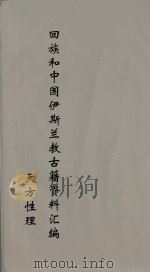 回族和中国伊斯兰教古籍资料汇编
天方性理
www.mtoou.info